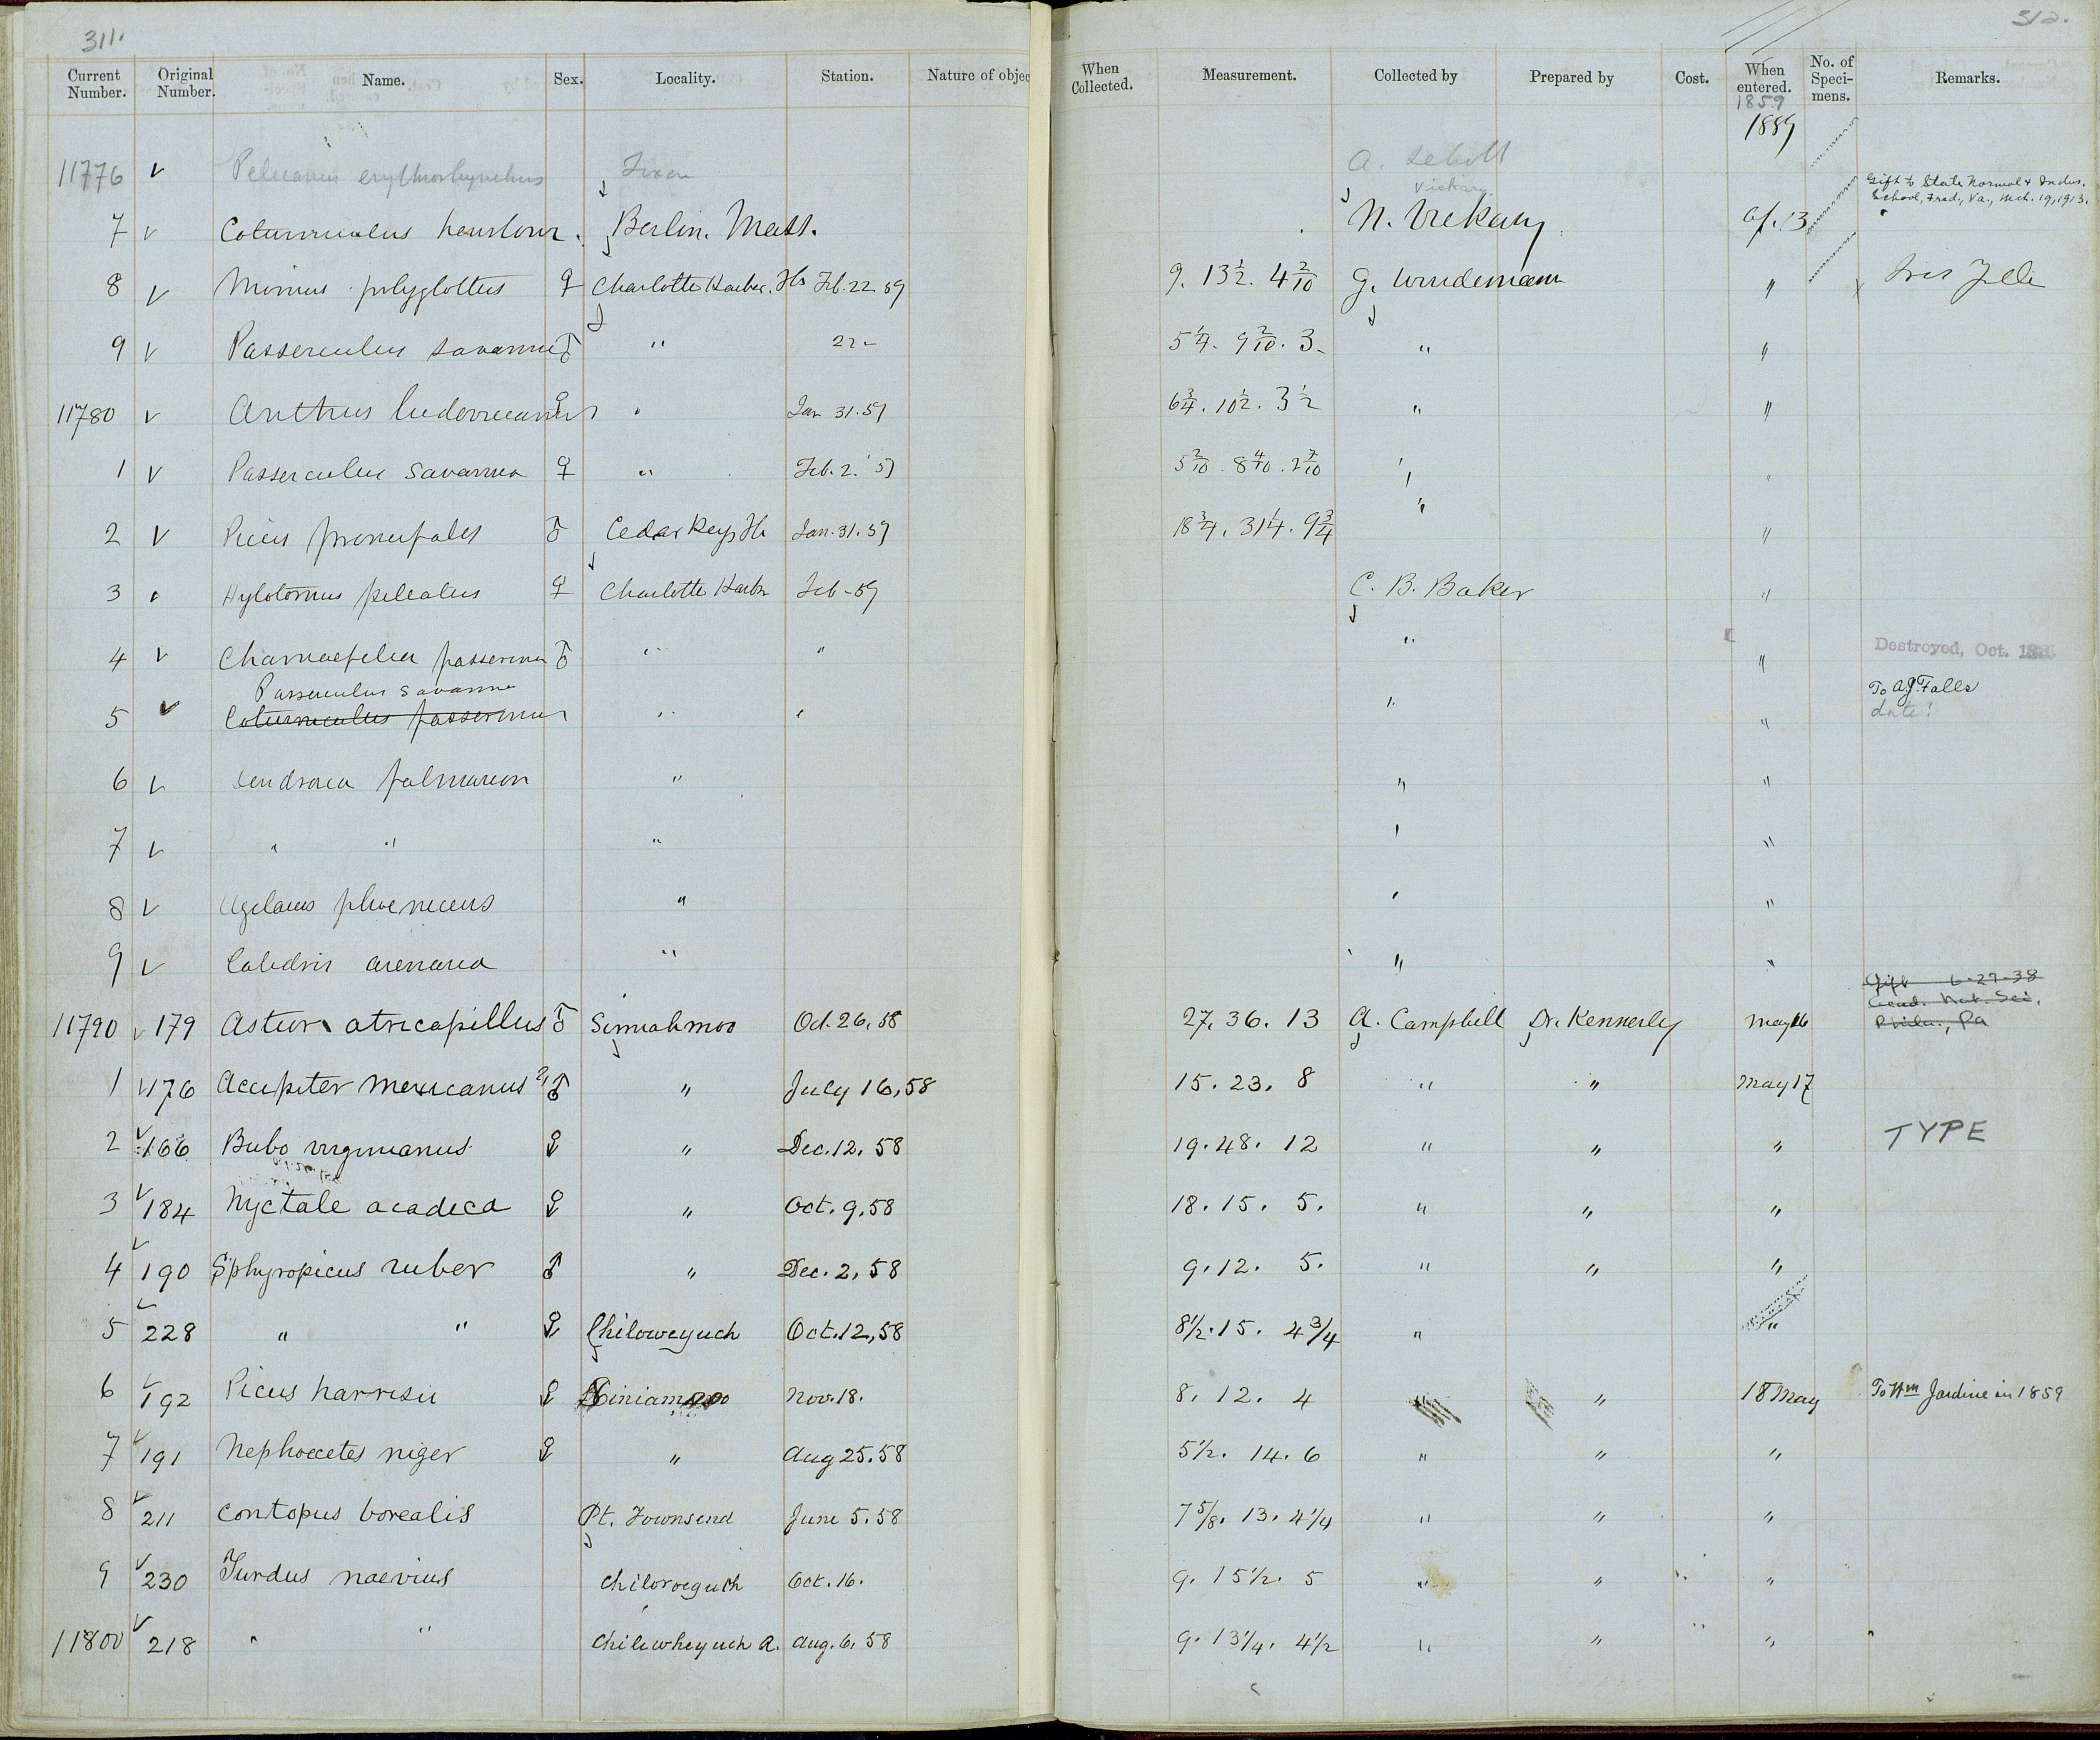 311.
312.
Current Number. Original Number. Name. Sex. Locality. Station. Nature of objec When Collected. Measurement. Collected by Prepared by Cost. When entered. No. of Speci-mens. Remarks.
1859
1859
11776 v Pelecanus erythrorhynchus Texas A. Schott
Vickary.
Gift to State Normal & Indus. School, Fred., Va., Mch. 19, 1913.
7 v Coturniculus henslowi. Berlin. Mass. N. Vickary Ap. 13
8 v Mimus polyglottus ♀ Charlotte Harbor. Fla Feb. 22. 59 9. 13 1/2. 4 2/10 G. Wurdemann "
9 v Passerculus savanna ♂ " 22 - 5 1/4. 9 2/10. 3- " "
11780 v Anthus ludovicianus ♀ " Jan 31. 59 6 3/4. 10 1/2. 3 1/2 " "
1 v Passerculus savanna ♀ " Feb. 2. '59 5 2/10. 8 4/10. 2 7/10 " "
2 v Picus ♂ Cedar Keys Fla Jan. 31. 59 18 3/4. 31 1/4. 9 3/4 " "
3 Hylotomus pileatus ♀ Charlotte Harbor Feb - 59 C. B. Baker "
4 v Chamaepelia passerina ♂ " " " " Destroyed, Oct.
Passerculus savanna
5 v Coturniculus passerinus " " " " To A.J. Falls
date?
6 v Dendroica palmarum " " "
7 v " " " " "
8 v Agelaius phoeniceus " " "
9 v Calidris arenaria " " "
Gift 6-27-38
Acad. Nat. Sci.
Phila., Pa
11790 v 179 Astur atricapillus ♂ Simiahmoo Oct. 26, 58 27. 36. 13 A. Campbell Dr. Kennerly May 16
1 v 176 Accipiter mexicanus ? ♂ " July 16, 58 15. 23. 8 " " May 17
2 v 166 Bubo virginianus ♀ " Dec. 12. 58 19. 48. 12 " " " TYPE
3 v 184 Nyctale acadica ♀ " Oct. 9. 58 18. 15. 5. " " "
4 v 190 Sphyropicus ruber ♂ " Dec. 2, 58 9. 12. 5. " " "
5 v 228 " " ♀ Chiloweyuch Oct. 12, 58 8 1/2. 15. 4 3/4 " "
6 v 192 Picus harrisii ♀ Siniamoo Nov. 18. 8. 12. 4 " " 18 May To Wm Jardine in 1859
7 v 191 Nephoecetes niger ♀ " Aug 25. 58 5 1/2. 14. 6 " " "
8 v 211 Contopus borealis Pt. Townsend June 5. 58 7 5/8. 13. 4 1/4 " " "
9 v 230 Turdus naevius Chiloweyuch Oct. 16. 9. 15 1/2. 5 " " " "
11800 v 218 " " Chilowheyuch A. Aug. 6. 58 9. 13 1/4. 4 1/2 " " " "